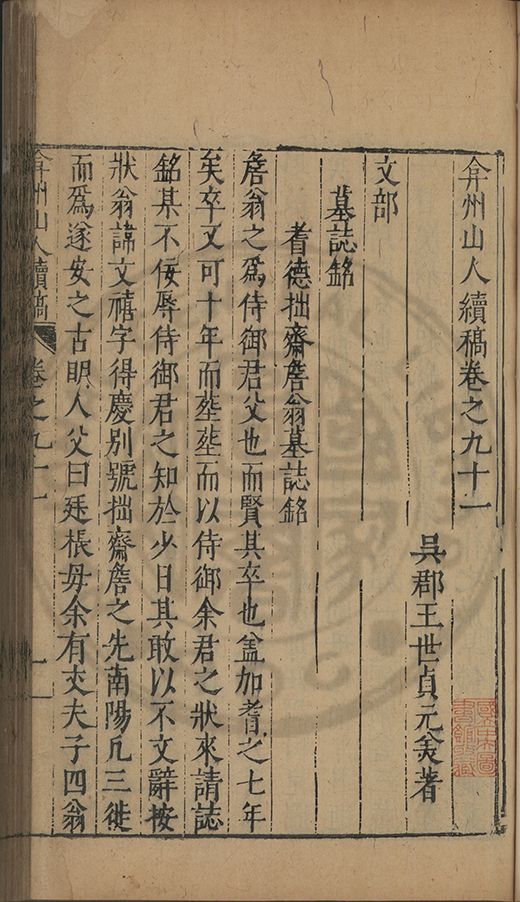 弇州山人續稿卷之九十一
吳郡王世貞元美著
文部
墓誌銘
耆德拙齋詹翁墓誌銘
詹翁之爲侍御君父也而賢其卒也盖加耆之七年
矣卒又可十年而塟塟而以侍御余君之狀來請誌
銘某不佞辱侍御君之知於少日其敢以不文辭按
狀翁諱文禧字得慶别號拙齋詹之先南陽凡三徙
而爲遂安之古明人父曰廷棖毋余有丈夫子四翁
弇州山人續稿
卷之九十一
一